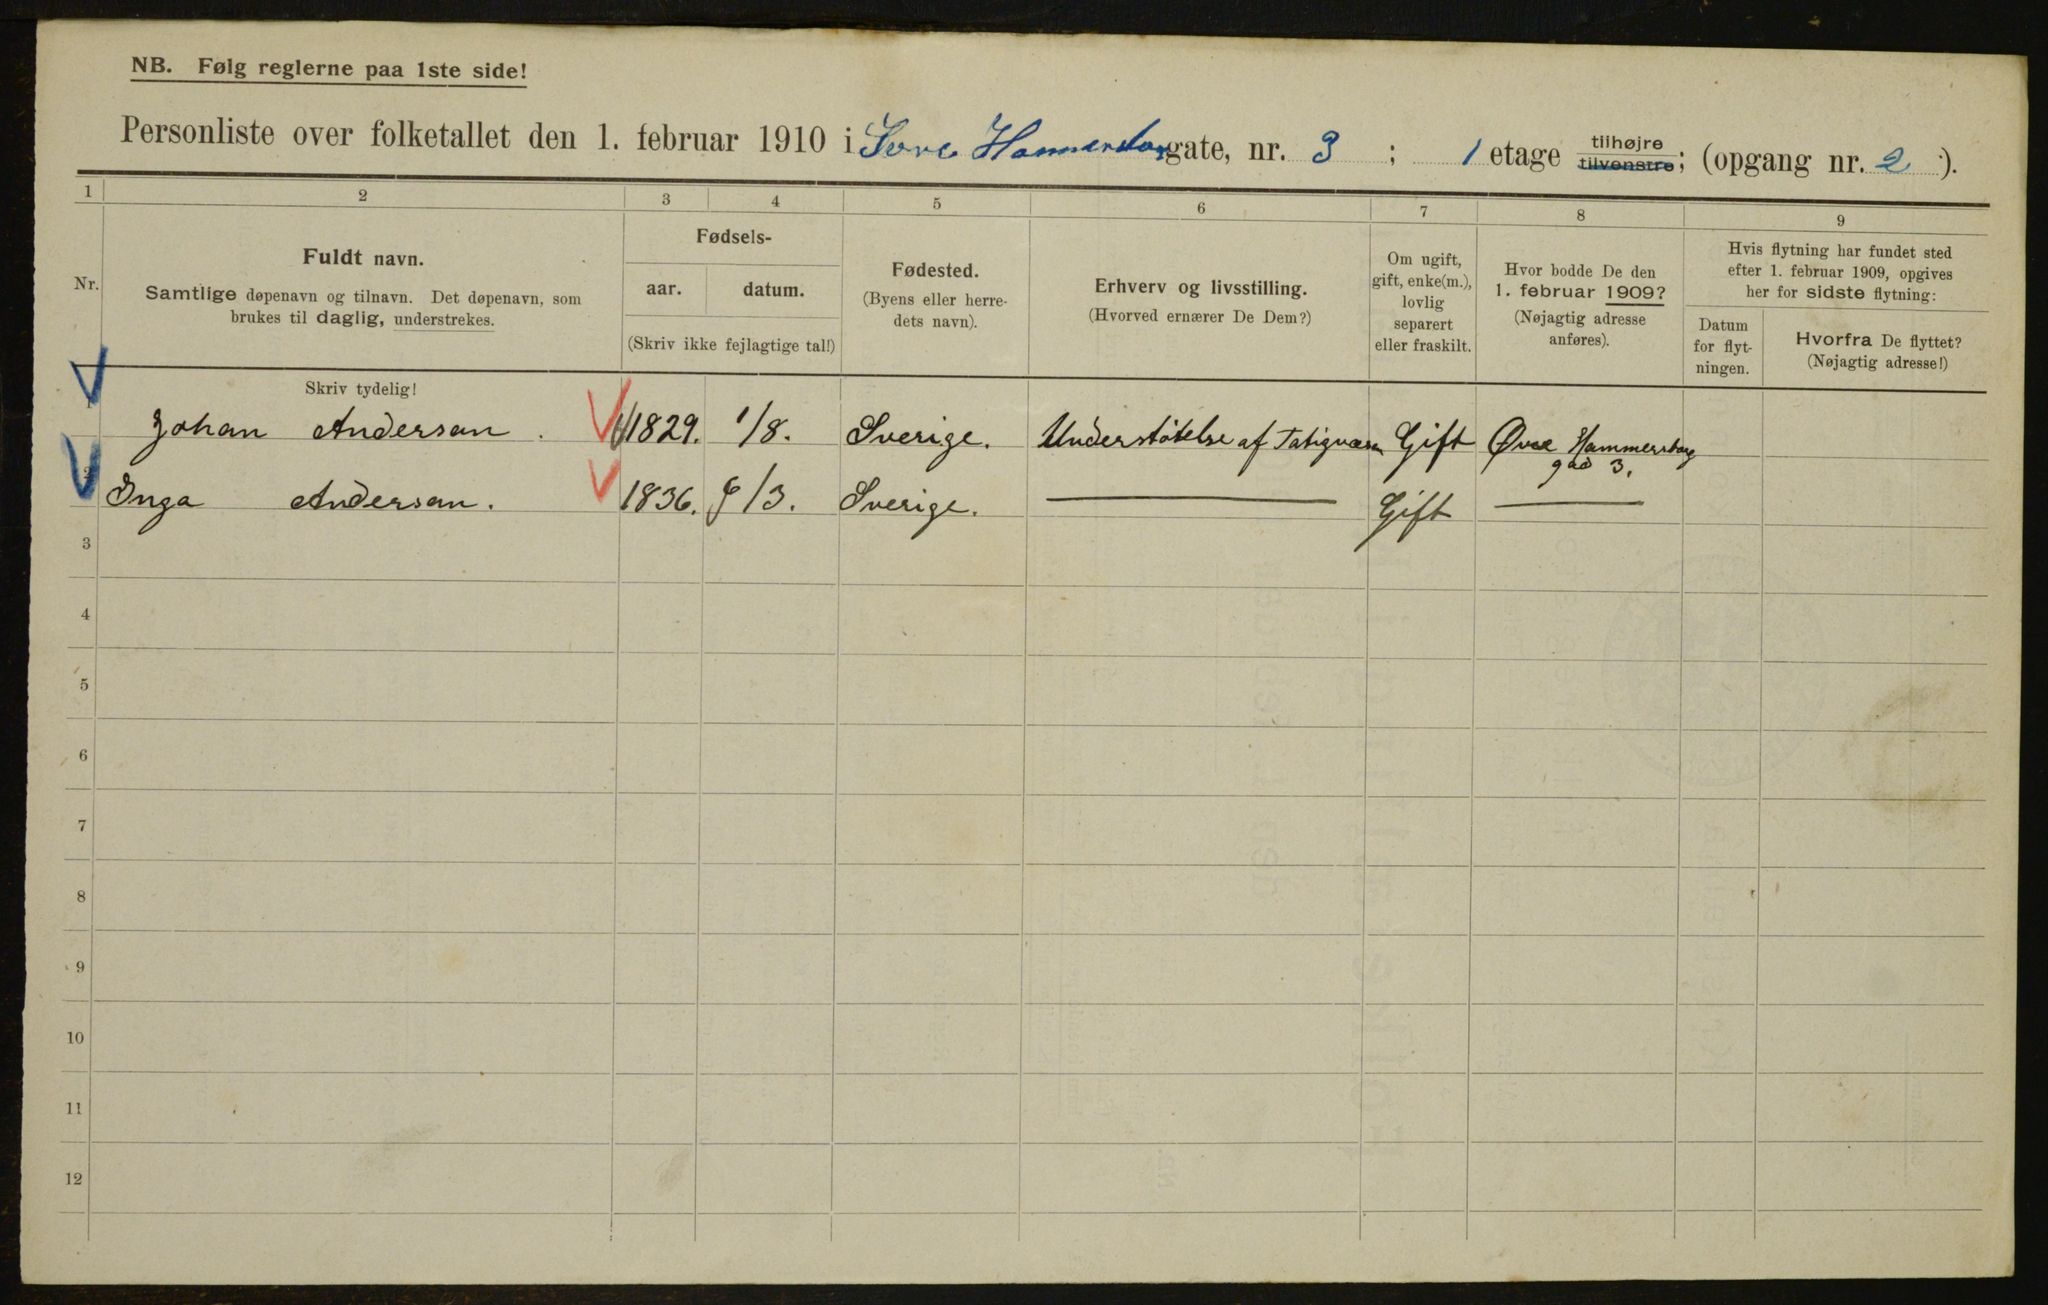 NB. Følg reglerne paa 1ste side!
Personliste over folketallet den 1. februar 1910 i Hammersborggate, nr. 3 ; 1 etage tilhøjre tilvenstre; (opgang nr. 2 ).
1 2 3 4 5 6 7 8 9
Nr.
Fuldt navn.
Samtlige døpenavn og tilnavn. Det døpenavn, som
brukes til daglig, understrekes.
Fødsels-
aar. datum.
(Skriv ikke fejlagtige tal!)
Fødested.
(Byens eller herre-
dets navn).
Erhverv og livsstilling.
(Hvorved ernærer De Dem?)
Om ugift,
gift, enke(m.),
lovlig
separert
eller fraskilt.
Hvor bodde De den
1. februar 1909?
(Nøjagtig adresse
anføres).
Hvis flytning har fundet sted
efter 1. februar 1909, opgives
her for sidste flytning:
Datum
for flyt-
ningen.
Hvorfra De flyttet?
(Nøjagtig adresse!)
Skriv tydelig!
1 Johan Andersen . 1829. 1/8. Sverige. Understøtelse af Gift Øvre Hammersborg
gad 3.
2 Inga Andersen. 1836. 9/3. Sverige. Gift
3
4
5
6
7
8
9
10
11
12